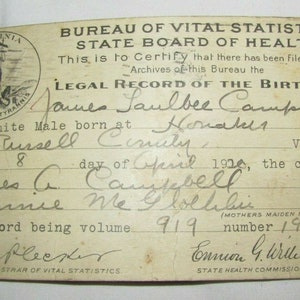 BUREAU OF VITAL STATIST
STATE BOARD OF HEAL
This is to Certify that there has been filed
Archives of this Bureau the
LEGAL RECORD OF THE BIRT
James Faulbee Camp
ite Male born at Honaker
Russell County V
8 day of April 19 the c
es A. Campbell
nnie McGlothlin
(MOTHERS MAIDEN
ord being volume 919 number 19
Plecker
STRAR OF VITAL STATISTICS
Ennion G. Willi
STATE HEALTH COMMISSION